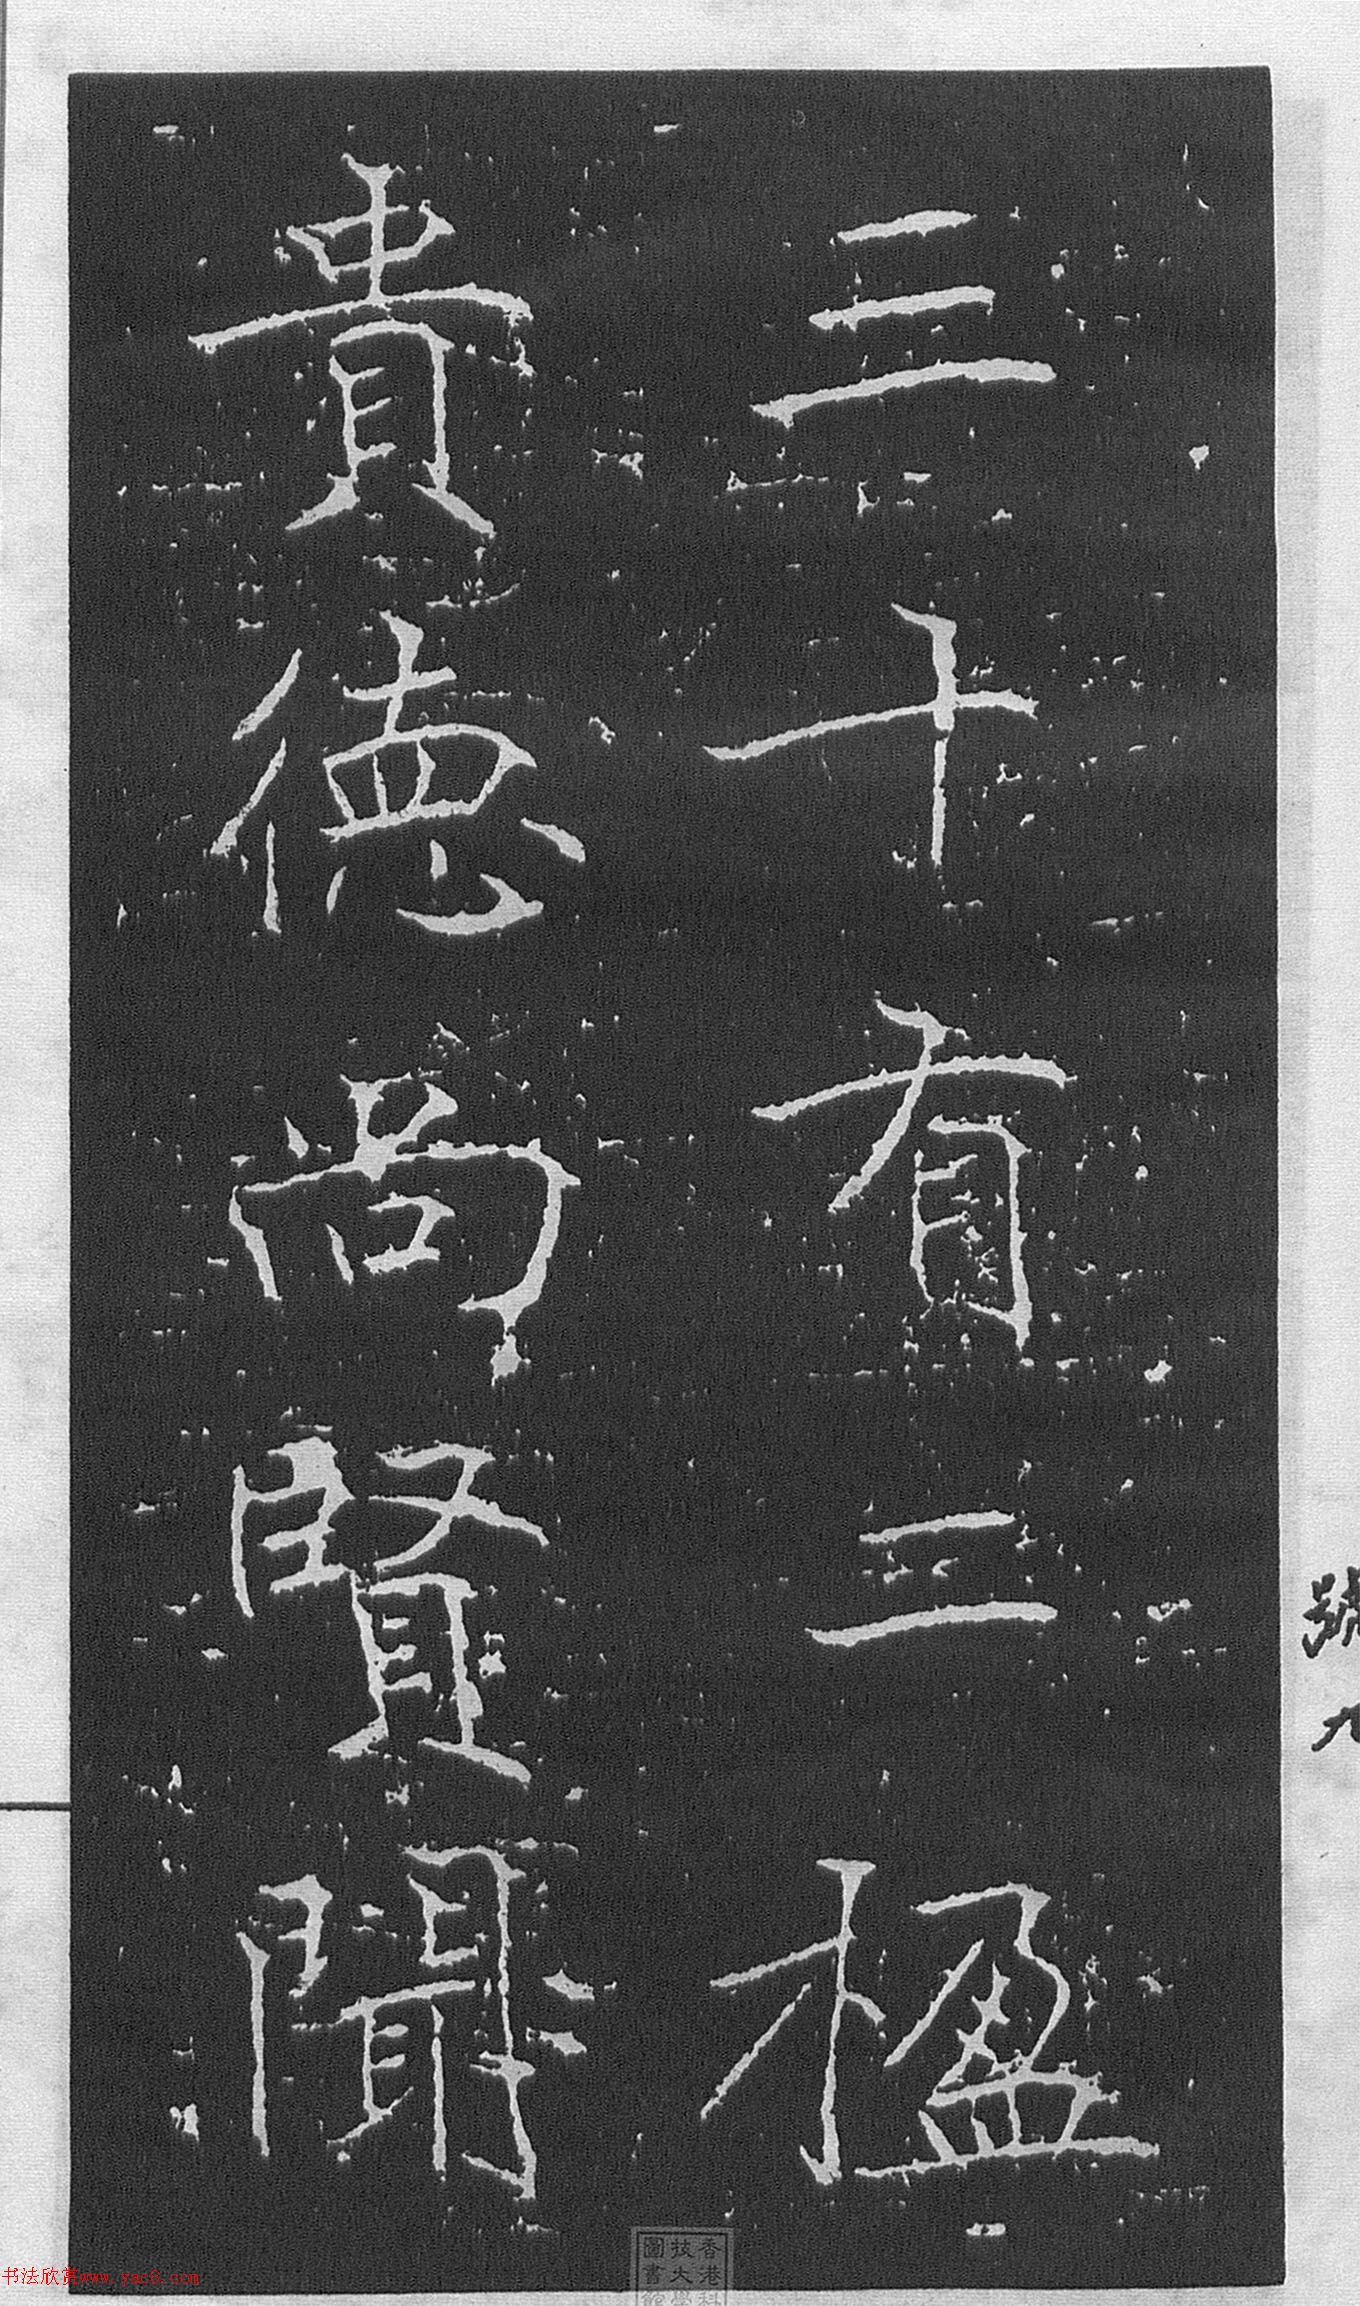 三十有二楹
貴德尚賢聞
香港科
技大學
圖書館
书法欣赏www.yac8.com